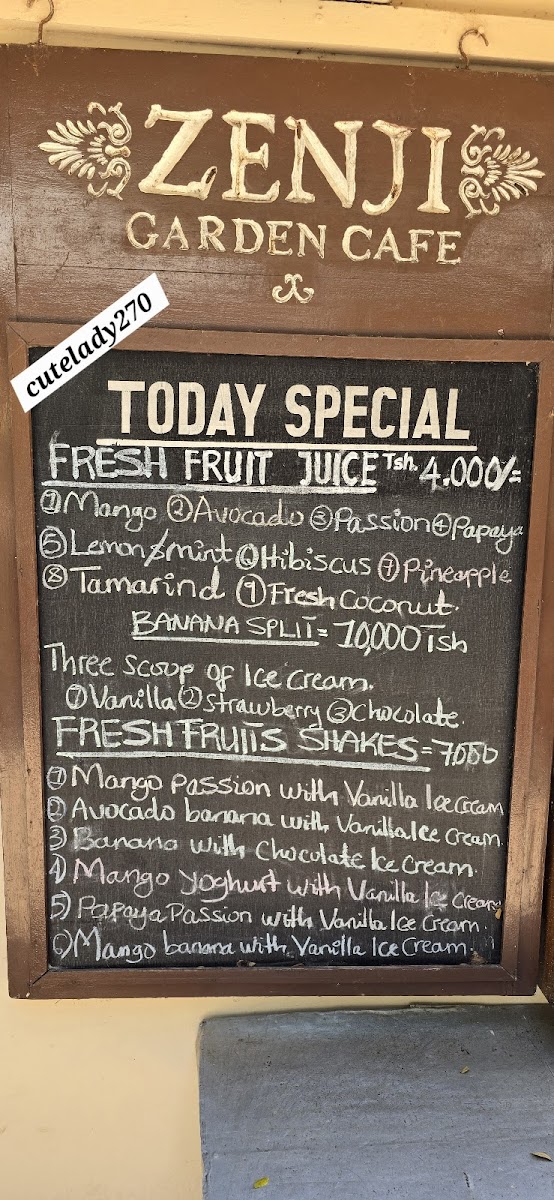 ZENJI
GARDEN CAFE
cutelady270
TODAY SPECIAL
FRESH FRUIT JUICE Tsh. 4.000/=
① Mango ② Avocado ③ Passion ④ Papaya
⑤ Lemon/mint ⑥ Hibiscus ⑦ Pineapple
⑧ Tamarind ⑨ Fresh Coconut.
BANANA SPLIT = 10,000 Tsh
Three Scoop of Ice Cream.
① Vanilla ② Strawberry ③ Chocolate.
FRESH FRUITS SHAKES = 7,000
① Mango Passion with Vanilla Ice Cream
② Avocado banana with Vanilla Ice Cream.
③ Banana with Chocolate Ice Cream.
④ Mango yoghurt with Vanilla Ice Cream
⑤ Papaya Passion with Vanilla Ice Cream.
⑥ Mango banana with Vanilla Ice Cream.